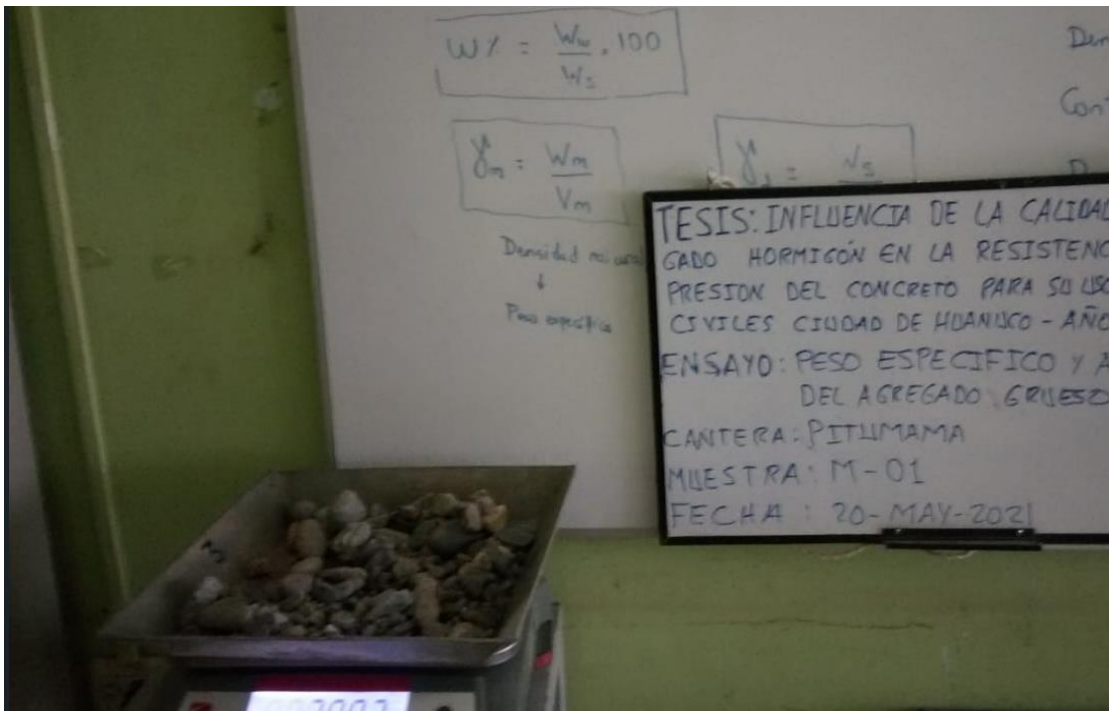 W% = Ww/Ws . 100
γm = Wm/Vm
γd =
Densidad natural
↓
Peso específico
Den
Cont
TESIS: INFLUENCIA DE LA CALIDAD
GADO HORMIGÓN EN LA RESISTENC
PRESION DEL CONCRETO PARA SU USO
CIVILES CIUDAD DE HUANUCO - AÑO
ENSAYO: PESO ESPECIFICO Y A
DEL AGREGADO GRUESO
CANTERA: PITUMAMA
MUESTRA: M-01
FECHA : 20-MAY-2021